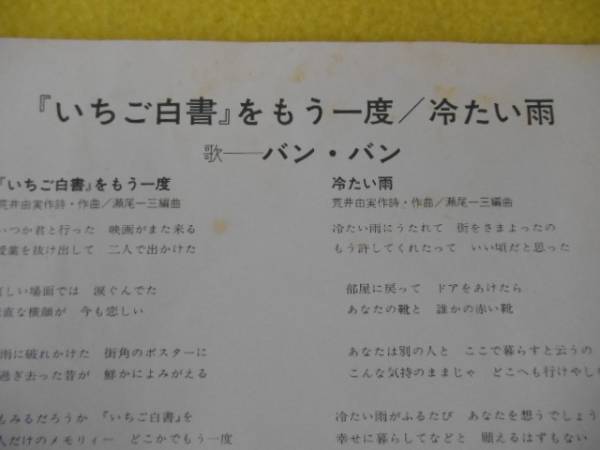 『いちご白書』をもう一度／冷たい雨
歌──バン・バン
『いちご白書』をもう一度
荒井由実作詩・作曲／瀬尾一三編曲
いつか君と行った 映画がまた来る
授業を抜け出して 二人で出かけた
しい場面では 涙ぐんでた
直な横顔が 今も恋しい
雨に破れかけた 街角のポスターに
過ぎ去った昔が 鮮かによみがえる
もみるだろうか 『いちご白書』を
人だけのメモリィー どこかでもう一度
冷たい雨
荒井由実作詩・作曲／瀬尾一三編曲
冷たい雨にうたれて 街をさまよったの
もう許してくれたって いい頃だと思った
部屋に戻って ドアをあけたら
あなたの靴と 誰かの赤い靴
あなたは別の人と ここで暮らすと云うの
こんな気持のままじゃ どこへも行けやし
冷たい雨がふるたび あなたを想うでしょう
幸せに暮らしてなどと 願えるはずもない